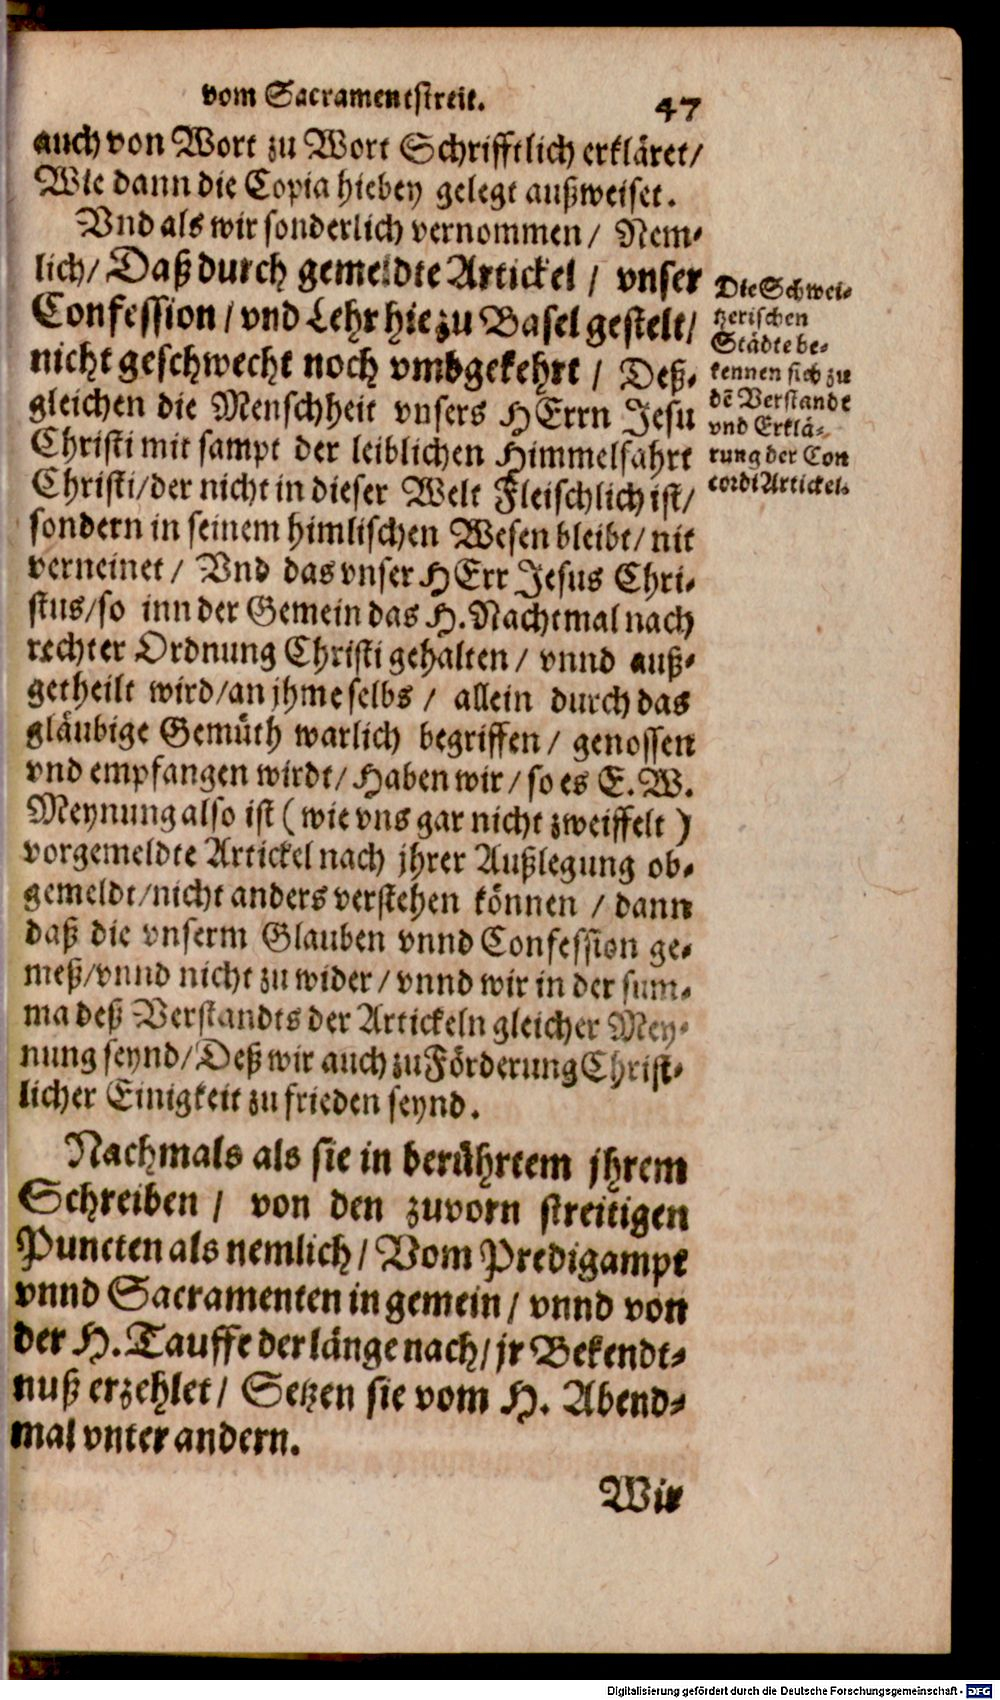 vom Sacramentstreit. 47
auch von Wort zu Wort Schrifftlich erkläret/
Wie dann die Copia hiebey gelegt außweiset.
Vnd als wir sonderlich vernommen/ Nem-
lich/ Daß durch gemeldte Artickel / vnser
Confession / vnd Lehr hie zu Basel gestelt/
nicht geschwecht noch vmbgekehrt / Deß-
gleichen die Menschheit vnsers HErrn Jesu
Christi mit sampt der leiblichen Himmelfahrt
Christi/der nicht in dieser Welt Fleischlich ist/
sondern in seinem himlischen Wesen bleibt/ nit
verneinet / Vnd das vnser HErr Jesus Chri-
stus/so inn der Gemein das H. Nachtmal nach
rechter Ordnung Christi gehalten / vnnd auß-
getheilt wird/an jhme selbs / allein durch das
gläubige Gemüth warlich begriffen / genossen
vnd empfangen wirdt/ Haben wir / so es E. W.
Meynung also ist ( wie vns gar nicht zweiffelt )
vorgemeldte Artickel nach jhrer Außlegung ob-
gemeldt/nicht anders verstehen können / dann
daß die vnserm Glauben vnnd Confession ge-
meß/vnnd nicht zu wider / vnnd wir in der sum-
ma deß Verstandts der Artickeln gleicher Mey-
nung seynd/ Deß wir auch zu Förderung Christ-
licher Einigkeit zu frieden seynd.
Nachmals als sie in berührtem jhrem
Schreiben / von den zuvorn streitigen
Puncten als nemlich / Vom Predigampt
vnnd Sacramenten in gemein / vnnd von
der H. Tauffe der länge nach/ jr Bekendt-
nuß erzehlet / Setzen sie vom H. Abend-
mal vnter andern.
Wir
Die Schwei-
tzerischen
Städte be-
kennen sich zu
dē Verstandt
vnd Erklä-
rung der Con
cordi Artickel.
Digitalisierung gefördert durch die Deutsche Forschungsgemeinschaft - DFG